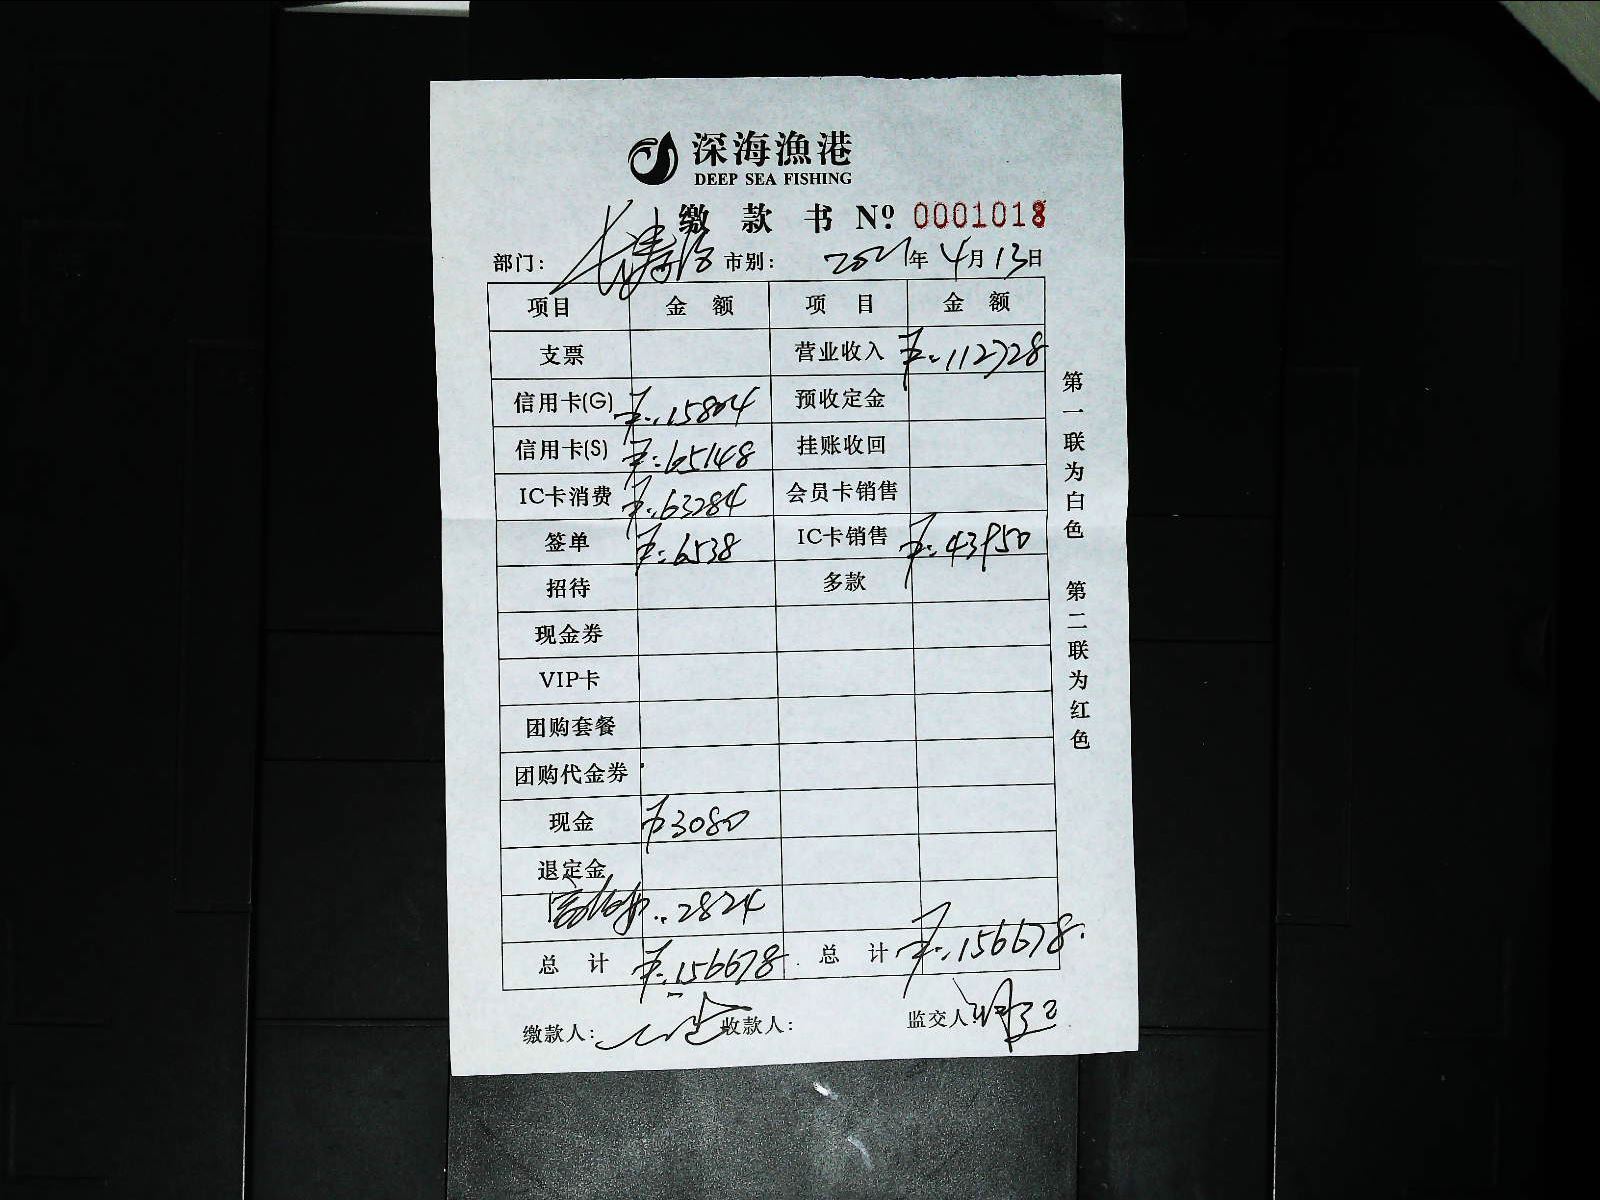 深海漁港
DEEP SEA FISHING
缴款书 Nº 0001018
部门： 市别： 2021年4月13日
项目 金额 项目 金额
支票 营业收入 ￥:112728
信用卡(G) ￥:15804 预收定金
信用卡(S) ￥:65148 挂账收回
IC卡消费 ￥:63284 会员卡销售
签单 ￥:6538 IC卡销售 ￥:43950
招待 多款
现金券
VIP卡
团购套餐
团购代金券
现金 ￥3080
退定金
:2824
总计 ￥:156678 总计 ￥:156678.
缴款人： 收款人： 监交人：
第一联为白色 第二联为红色